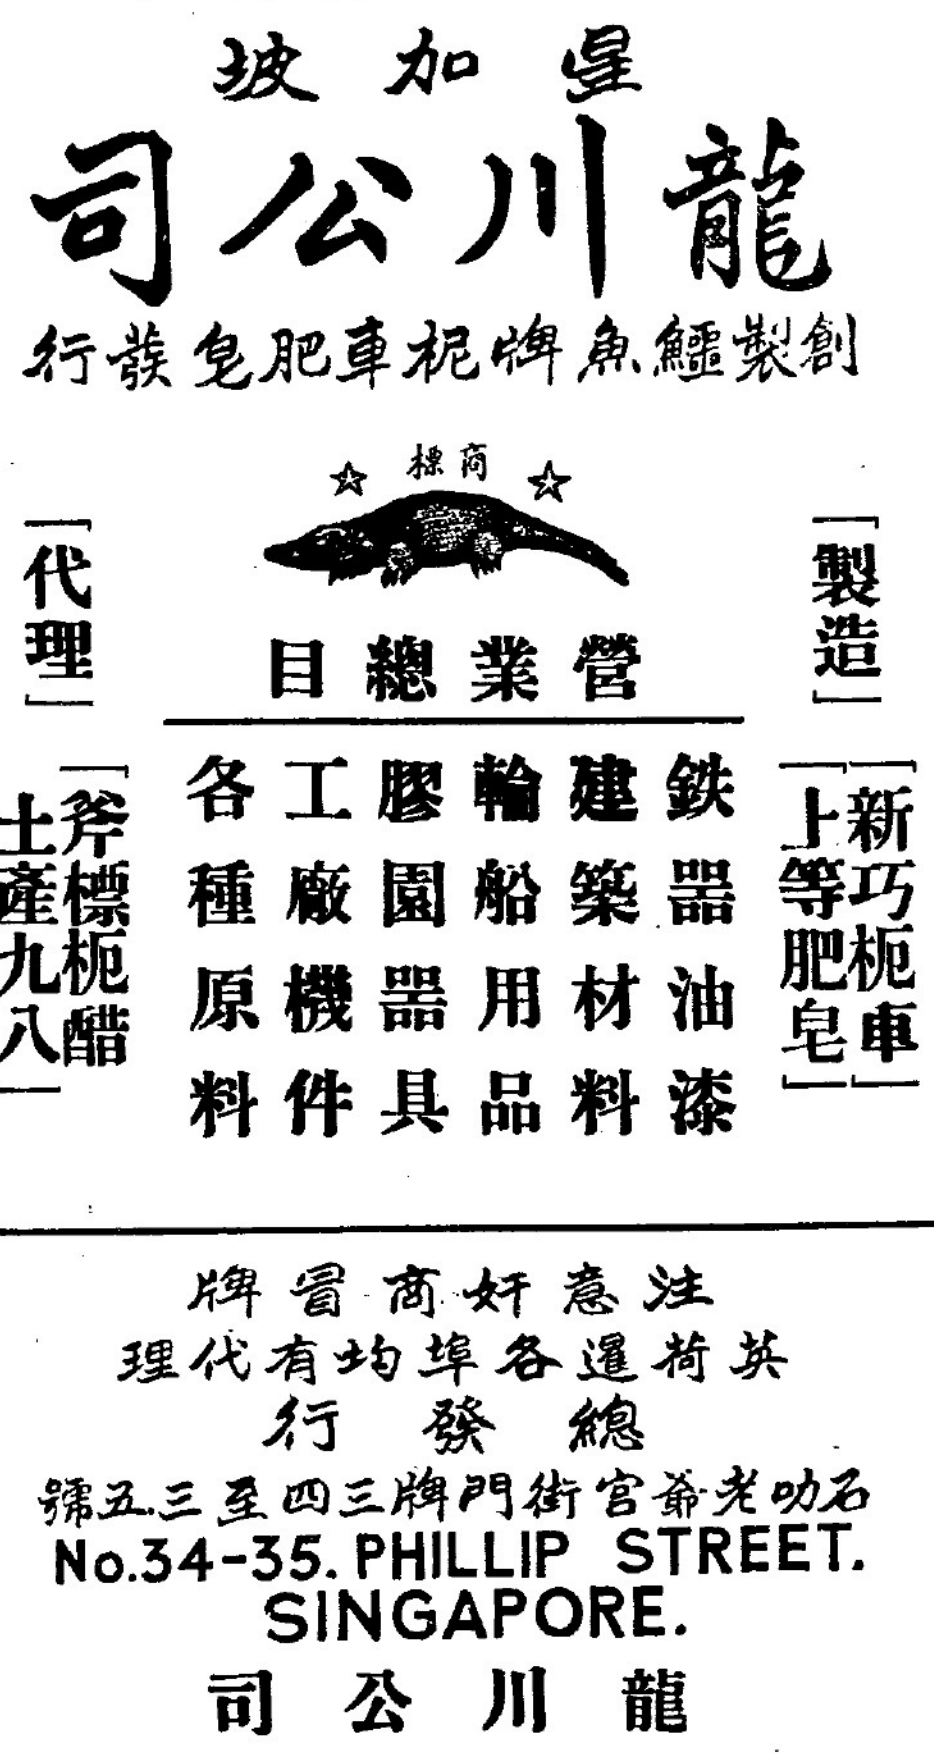 星加坡
龍川公司
創製鱷魚牌柅車肥皂發行
商標
「製造」
「新巧柅車」
「上等肥皂」
營業總目
鉄器油漆
建築材料
輪船用品
膠園器具
工廠機件
各種原料
「代理」
「斧標柅醋
土產九八」
注意奸商冒牌
英荷暹各埠均有代理
總發行
石叻老爺宮街門牌三四至三五號
No.34-35. PHILLIP STREET.
SINGAPORE.
龍川公司